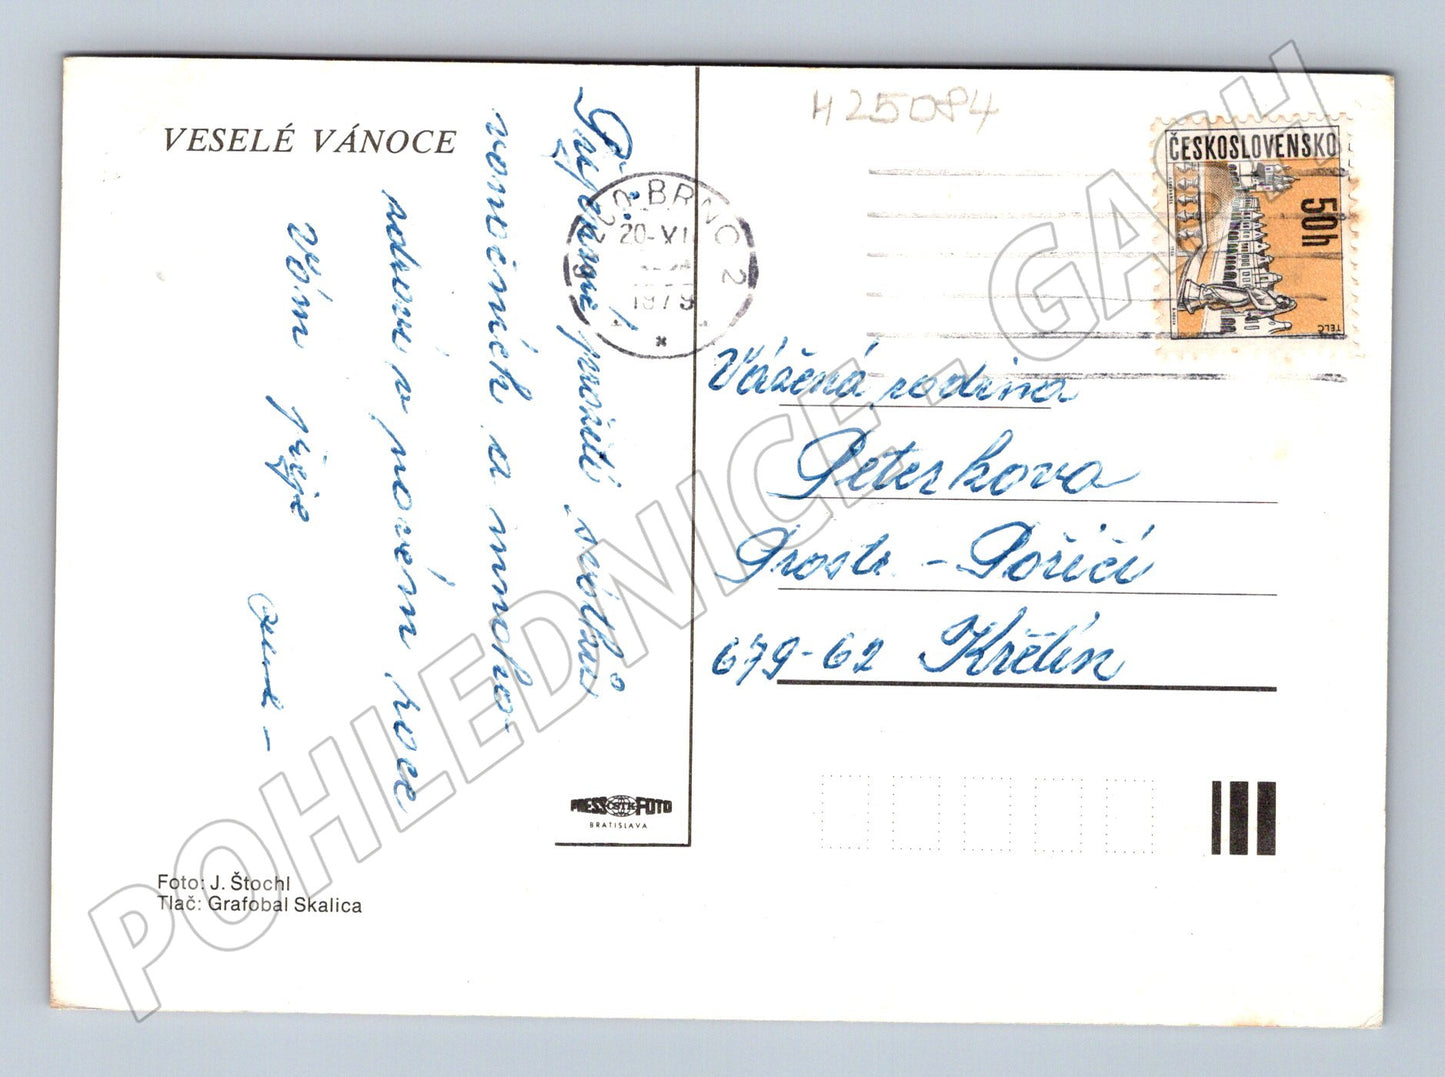 VESELÉ VÁNOCE
Příjemné prožití svátků
vánočních a mnoho
zdraví v novém roce
Vám přeje
H25084
BRNO 2
20-XI
1979
ČESKOSLOVENSKO
50h
TELČ
Vážená rodina
Peterkova
Prostř. - Poříčí
679-62 Křetín
PRESS ČSTK FOTO
BRATISLAVA
Foto: J. Štochl
Tlač: Grafobal Skalica
POHLEDNICE - GASH